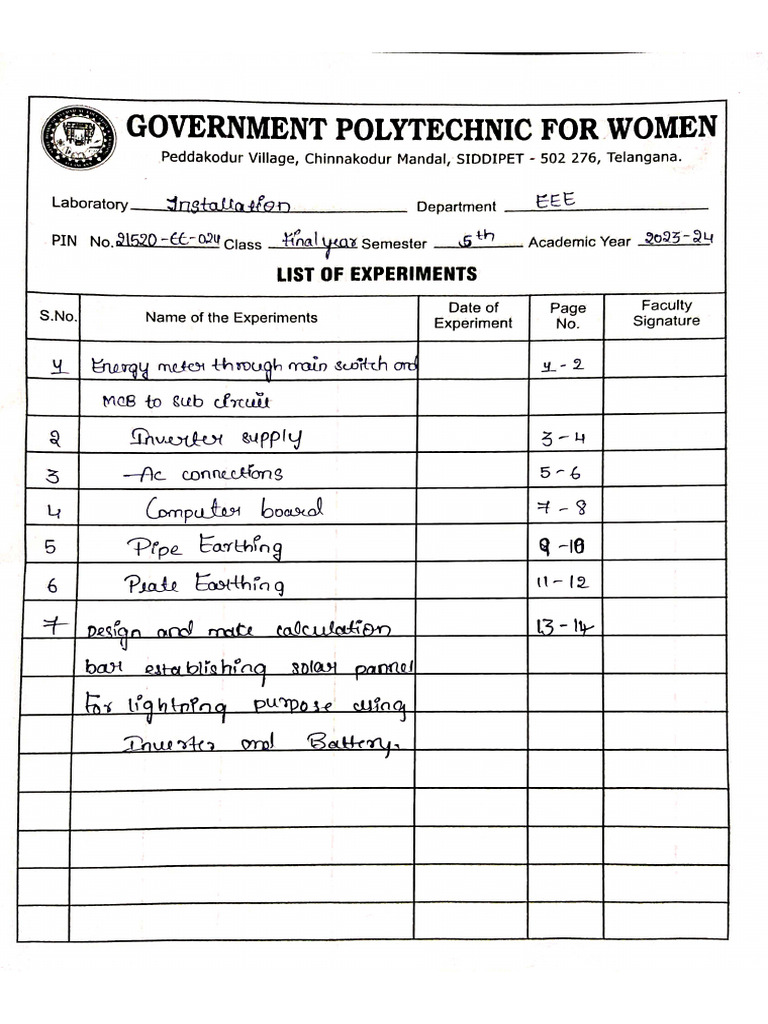 GOVERNMENT POLYTECHNIC FOR WOMEN
Peddakodur Village, Chinnakodur Mandal, SIDDIPET - 502 276, Telangana.
Laboratory Installation Department EEE
PIN No. 21520-EE-024 Class Final year Semester 5th Academic Year 2023-24
LIST OF EXPERIMENTS
S.No. Name of the Experiments Date of Experiment Page No. Faculty Signature
1 Energy meter through main switch and 1-2
MCB to sub circuit
2 Inverter supply 3-4
3 Ac connections 5-6
4 Computer board 7-8
5 Pipe Earthing 9-10
6 Plate Earthing 11-12
7 Design and mate calculation 13-14
bar establishing solar pannel
For lightning purpose using
Inverter and Battery.